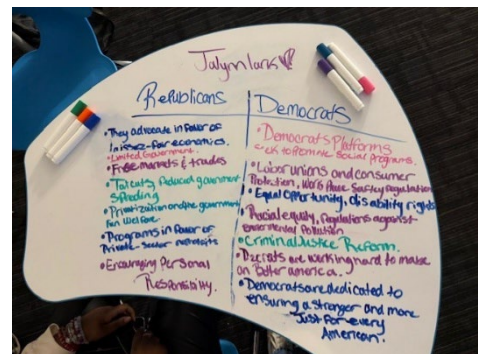 Jalynn lark
Republicans
• They advocate in favor of
laissez-fair economics.
• Limited Government.
• Free markets & trades
• Tax cuts, Reduced government
Spending
• Privatization the government
Welfare
• Programs in favor of
Private-Sector nonprofits
• Encouraging Personal
Responsibility.
Democrats
• Democrats Platforms
seek to Promote Social Programs.
• Labor unions and consumer
Protection, Work Place Safety regulation
• Equal Opportunity, disability rights
Racial equity, Regulations against
enviromental Pollution
• Criminal Justice Reform.
• are working hard to make
an Better america.
• Democrats are dedicated to
ensuring a stronger and more
Just for every
American.